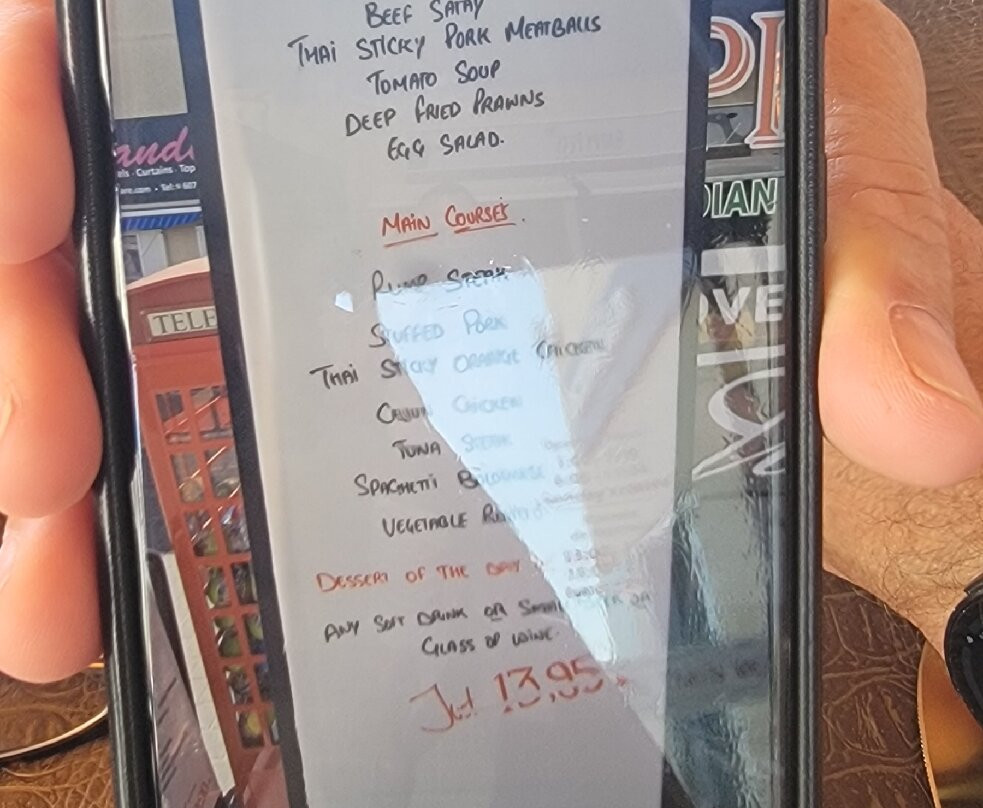 BEEF SATAY
THAI STICKY PORK MEATBALLS
TOMATO SOUP
DEEP FRIED PRAWNS
EGG SALAD.
MAIN COURSES.
RUMP STEAK
STUFFED PORK
THAI STICKY ORANGE CHICKEN
CAJUN CHICKEN
TUNA STEAK
SPAGHETTI BOLOGNESE
VEGETABLE
DESSERT OF THE DAY
ANY SOFT DRINK OR SMALL OR
GLASS OF WINE.
13,95
and
els · Curtains · Top
are.com · Tel: 607
TELE
PI
DIAN
OVE